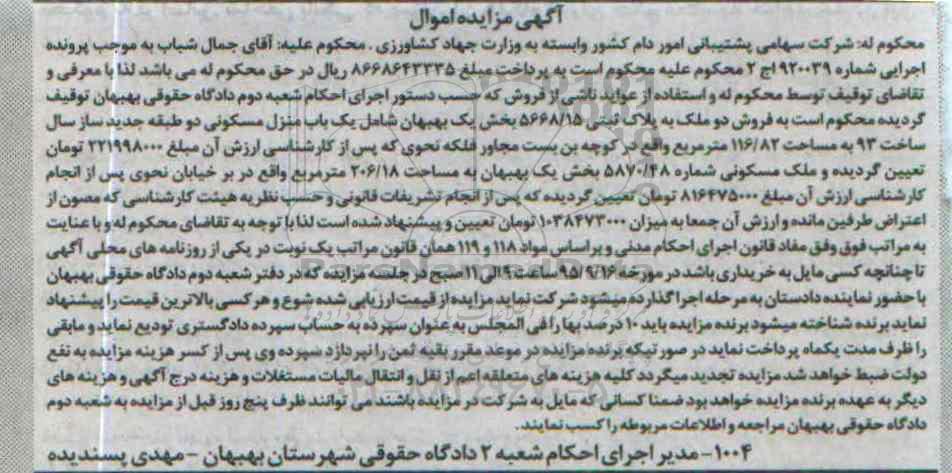 آگهی مزایده اموال
محکوم له: شرکت سهامی پشتیبانی امور دام کشور وابسته به وزارت جهاد کشاورزی . محکوم علیه: آقای جمال شباب به موجب پرونده
اجرایی شماره ۹۲۰۰۳۹ اج ۲ محکوم علیه محکوم است به پرداخت مبلغ ۸۶۶۸۶۴۳۳۳۵ ریال در حق محکوم له می باشد لذا با معرفی و
تقاضای توقیف توسط محکوم له و استفاده از عواید ناشی از فروش که حسب دستور اجرای احکام شعبه دوم دادگاه حقوقی بهبهان توقیف
گردیده محکوم است به فروش دو ملک به پلاک ثبتی ۵۶۶۸/۱۵ بخش یک بهبهان شامل یک باب منزل مسکونی دو طبقه جدید ساز سال
ساخت ۹۳ به مساحت ۱۱۶/۸۲ مترمربع واقع در کوچه بن بست مجاور فلکه نحوی که پس از کارشناسی ارزش آن مبلغ ۲۲۱۹۹۸۰۰۰ تومان
تعیین گردیده و ملک مسکونی شماره ۵۸۷۰/۴۸ بخش یک بهبهان به مساحت ۲۰۶/۱۸ مترمربع واقع در بر خیابان نحوی پس از انجام
کارشناسی ارزش آن مبلغ ۸۱۶۴۷۵۰۰۰ تومان تعیین گردیده که پس از انجام تشریفات قانونی و حسب نظریه هیئت کارشناسی که مصون از
اعتراض طرفین مانده و ارزش آن جمعا به میزان ۱۰۳۸۴۷۳۰۰۰ تومان تعیین و پیشنهاد شده است لذا با توجه به تقاضای محکوم له و با عنایت
به مراتب فوق وفق مفاد قانون اجرای احکام مدنی و براساس مواد ۱۱۸ و ۱۱۹ همان قانون مراتب یک نوبت در یکی از روزنامه های محلی آگهی
تا چنانچه کسی مایل به خریداری باشد در مورخه ۹۵/۹/۱۶ ساعت ۹ الی ۱۱ صبح در جلسه مزایده که در دفتر شعبه دوم دادگاه حقوقی بهبهان
با حضور نماینده دادستان به مرحله اجرا گذارده میشود شرکت نماید مزایده از قیمت ارزیابی شده شروع و هر کسی بالاترین قیمت را پیشنهاد
نماید برنده شناخته میشود برنده مزایده باید ۱۰ درصد بها را فی المجلس به عنوان سپرده به حساب سپرده دادگستری تودیع نماید و مابقی
را ظرف مدت یکماه پرداخت نماید در صورتیکه برنده مزایده در موعد مقرر بقیه ثمن را نپردازد سپرده وی پس از کسر هزینه مزایده به نفع
دولت ضبط خواهد شد مزایده تجدید میگردد کلیه هزینه های متعلقه اعم از نقل و انتقال مالیات مستغلات و هزینه درج آگهی و هزینه های
دیگر به عهده برنده مزایده خواهد بود ضمنا کسانی که مایل به شرکت در مزایده باشند می توانند ظرف پنج روز قبل از مزایده به شعبه دوم
دادگاه حقوقی بهبهان مراجعه و اطلاعات مربوطه را کسب نمایند.
۱۰۰۴- مدیر اجرای احکام شعبه ۲ دادگاه حقوقی شهرستان بهبهان - مهدی پسندیده